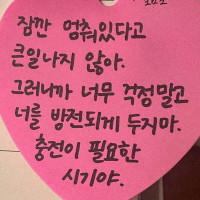 잠깐 멈춰있다고
큰일나지 않아.
그러니까 너무 걱정말고
너를 방전되게 두지마.
충전이 필요한
시기야.